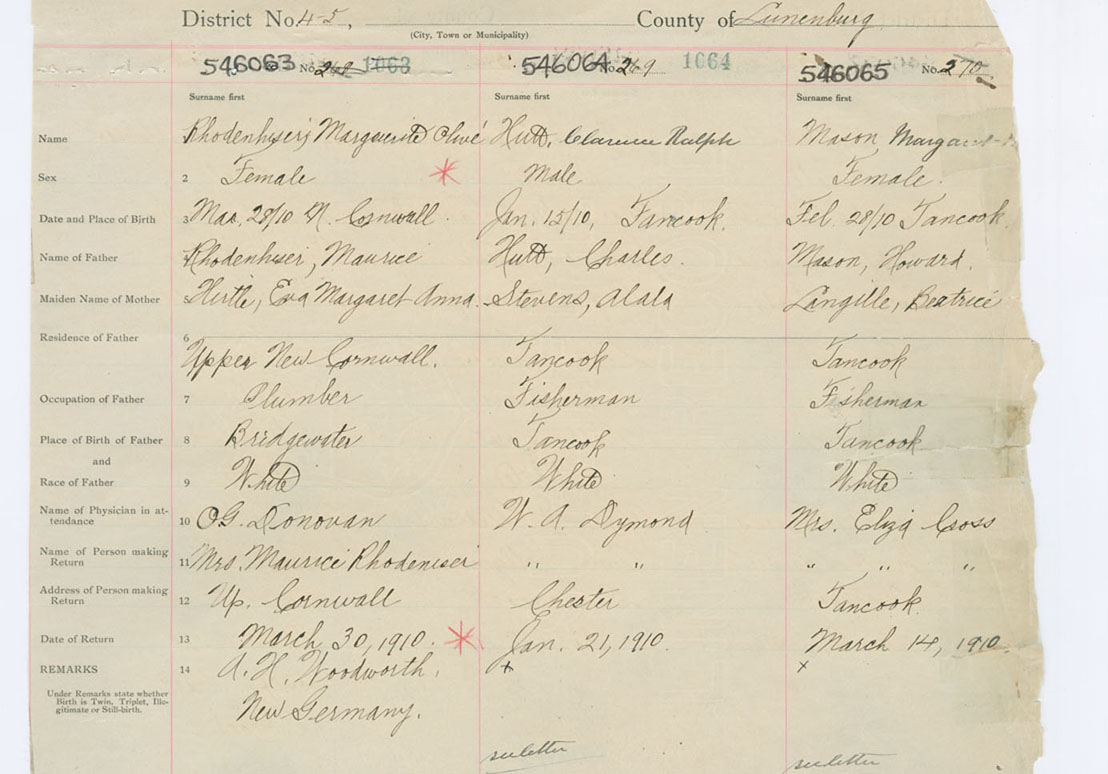 District No. 45, County of Lunenburg
(City, Town or Municipality)
546063 No. 268 1063 546064 No. 269 1064 546065 No. 270
Surname first Surname first Surname first
Name Rhodenhiser, Marguerite Olive Hutt, Clarence Ralph Mason Margaret
Sex 2 Female Male Female.
Date and Place of Birth 3 Mar. 28/10 N. Cornwall. Jan. 15/10, Tancook. Feb. 28/10 Tancook
Name of Father Rhodenhiser, Maurice Hutt, Charles. Mason, Howard.
Maiden Name of Mother 5 Hirtle, Eva Margaret Anna. Stevens, Alala Langille, Beatrice
Residence of Father 6
Upper New Cornwall. Tancook Tancook
Occupation of Father 7 Plumber Fisherman Fisherman
Place of Birth of Father 8 Bridgewater Tancook Tancook
and
Race of Father 9 White White White
Name of Physician in at- 10 O.G. Donovan W. A. Dymond Mrs. Eliza Cross
tendance
Name of Person making 11 Mrs. Maurice Rhodeniser " " " " "
Return
Address of Person making 12 Up. Cornwall Chester Tancook.
Return
Date of Return 13 March 30, 1910. Jan. 21, 1910. March 14, 1910.
REMARKS 14 A. H. Woodworth, x x
Under Remarks state whether
Birth is Twin, Triplet, Ille-
gitimate or Still-birth.
New Germany.
see letter see letter